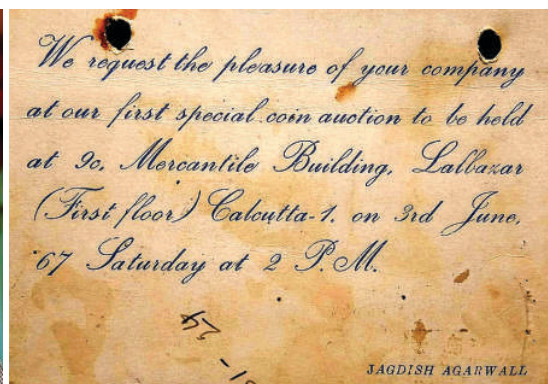 We request the pleasure of your company
at our first special coin auction to be held
at 9c, Mercantile Building, Lalbazar
(First floor) Calcutta-1. on 3rd June,
'67 Saturday at 2 P.M.
JAGDISH AGARWALL